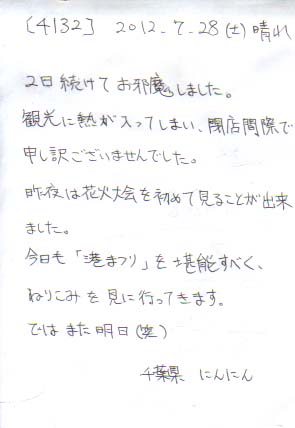 [4132] 2012.7.28(土)晴れ
2日続けてお邪魔しました。
観光に熱が入ってしまい、閉店間際で
申し訳ございませんでした。
昨夜は花火大会を初めて見ることが出来
ました。
今日も「港まつり」を堪能すべく、
ねりこみを見に行ってきます。
ではまた明日(笑)
千葉県 にんにん